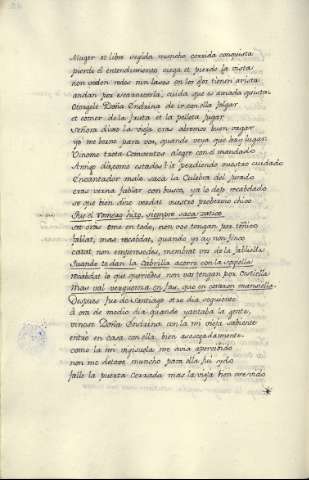 Muger et libre segida muncho corrida conquista
pierde el entendimiento, ciega et pierde la vista
non veden redes nin lasos en los ojos tienen arista
andan por escarnecerla, cuida que es amada quista
Otorgole Doña Endrina de ir con ella folgar
et comer de la fruta et la pelleta jugar
Señora dixo la vieja cras abremos buen vagar
yo me verné para vos, quando vere que hay lugar.
Vinome trota conventos alegre con el mandado
Amigo dis como estades? ir perdiendo vuestro cuidado
Encantador malo saca la Culebra del forado
cras verna fablar con busco, ya lo dejo recabdado
se que bien dise verdat vuestro proberbio chico
Que el romero fito, siempre saca zatico
set cras ome en todo, non vos tengan por teñico
fablat, mas recabdat, quando y yo non finco
catat, non emperesedes, menbrat vos de la fablilla
Quando te dan la Cabrilla acorre con la soguilla
recabdat lo que queredes, non vos tengan por Cestilla
Mas val verguenza en fas, que en corazon mansilla
Despues fue de Santiago otro dia seguiente
A ora de medio dia quando yantaba la gente,
vinose Doña Endrina con la mi vieja sabiente
entro en casa con ella, bien asosegadamente.
como la mi vejesuela me avia apersebido
non me detove muncho para alla fui ydo
falle la puerta cerrada mas la vieja bien me vido